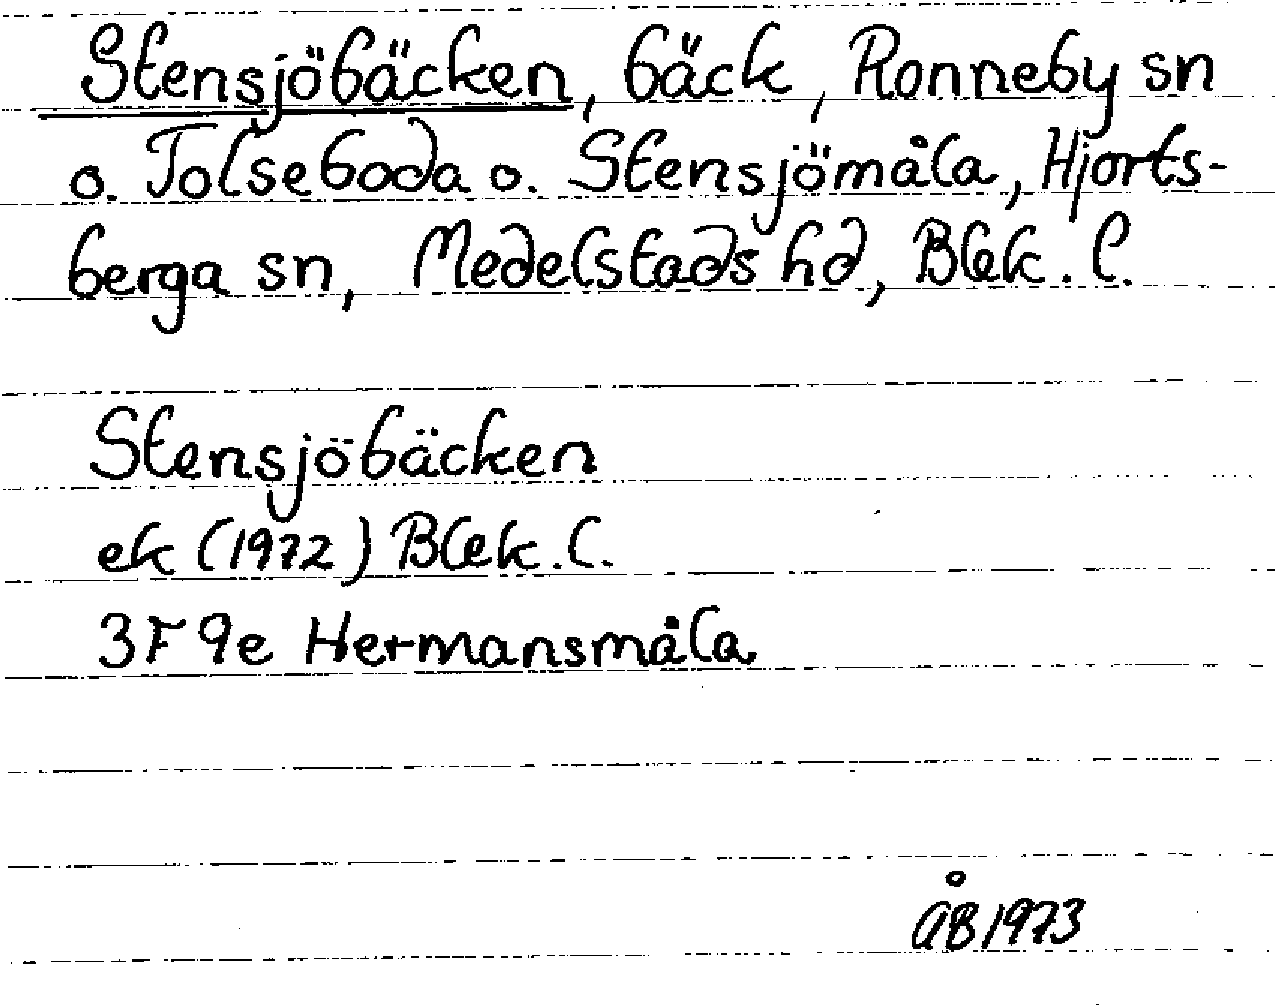 Stensjöbäcken, bäck, Ronneby sn
o. Tolseboda o. Stensjömåla, Hjorts-
berga sn, Medelstads hd, Blek. l.
Stensjöbäcken
ek (1972) Blek. l.
3F 9e Hermansmåla
ÅB 1973